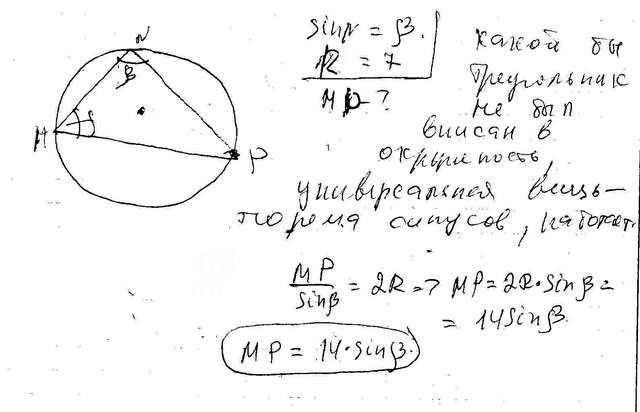 N
β
M
P
sin N = β.
R = 7
MP - ?
какой бы
треугольник
не был
вписан в
окружность,
универсальная вещь -
теорема синусов, работает.
MP/sinβ = 2R => MP = 2R·sinβ =
= 14sinβ
MP = 14·sinβ.